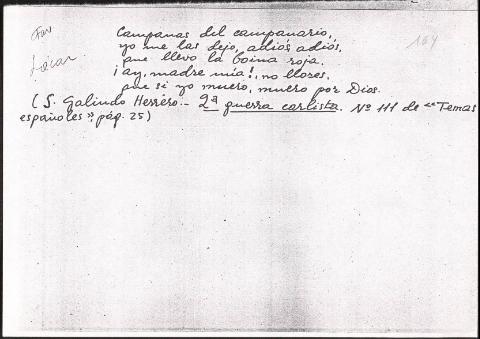 Campanas del campanario,
yo me las dejo, adiós adiós,
que llevo la boina roja.
¡ay, madre mía!, no llores,
que si yo muero, muero por Dios.
(S. Galindo Herrero.- 2ª guerra carlista. Nº 111 de "Temas
españoles", pág. 25)
164